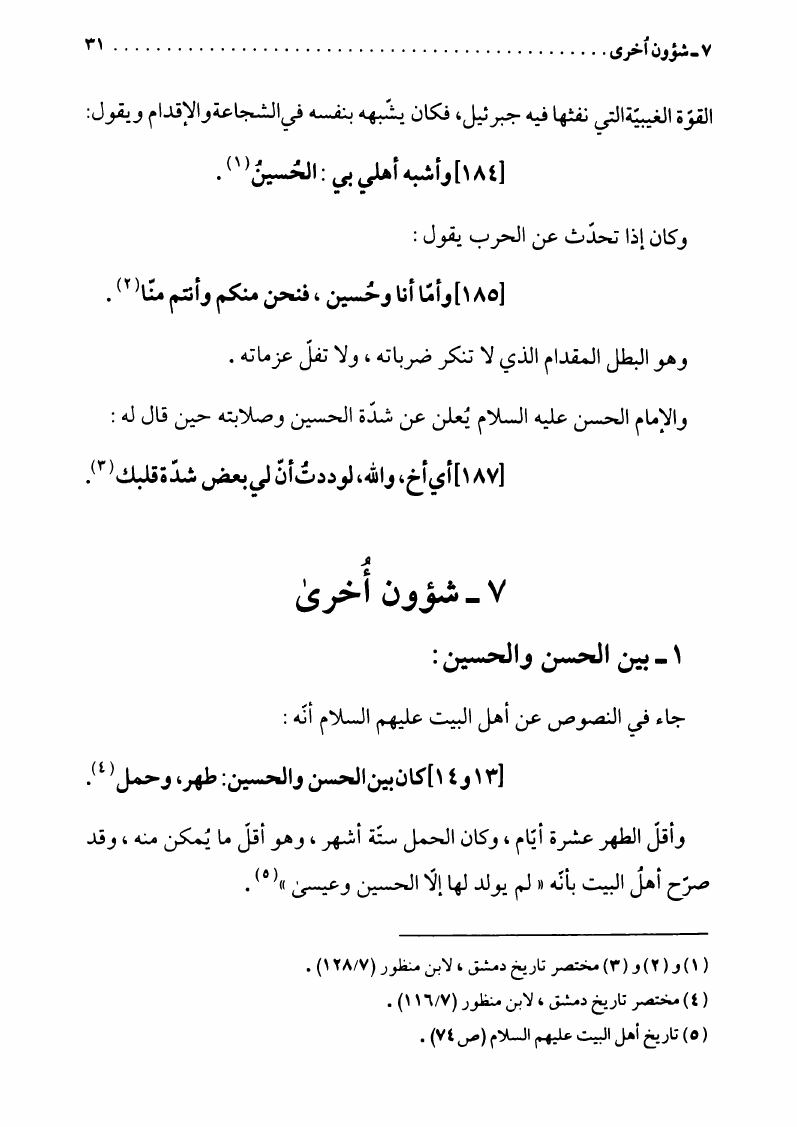 ٧ ـ شؤون أُخرى ............................................... ٣١
القوّة الغيبيّة التي نفثها فيه جبرئيل، فكان يشّبهه بنفسه في الشجاعة والإقدام ويقول:
[١٨٤] وأشبه أهلي بي : الحُسينُ (١) .
وكان إذا تحدّث عن الحرب يقول :
[١٨٥] وأمّا أنا وحُسين ، فنحن منكم وأنتم منّا (٢) .
وهو البطل المقدام الذي لا تنكر ضرباته ، ولا تفلّ عزماته .
والإمام الحسن عليه السلام يُعلن عن شدّة الحسين وصلابته حين قال له :
[١٨٧] أي أخ، والله، لوددتُ أنّ لي بعض شدّة قلبك (٣).
٧ ـ شؤون أُخرىٰ
١ ـ بين الحسن والحسين :
جاء في النصوص عن أهل البيت عليهم السلام أنّه :
[١٣ و ١٤] كان بين الحسن والحسين: طهر، وحمل (٤).
وأقلّ الطهر عشرة أيّام ، وكان الحمل ستّة أشهر ، وهو أقلّ ما يُمكن منه ، وقد
صرّح أهلُ البيت بأنّه « لم يولد لها إلّا الحسين وعيسىٰ » (٥) .
(١) و (٢) و (٣) مختصر تاريخ دمشق ، لابن منظور (١٢٨/٧) .
(٤) مختصر تاريخ دمشق ، لابن منظور (١١٦/٧) .
(٥) تاريخ أهل البيت عليهم السلام (ص ٧٤) .